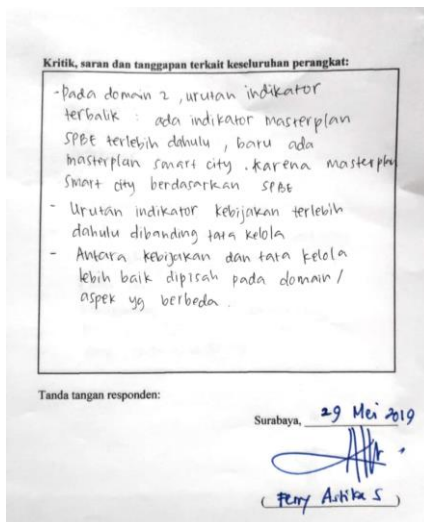 Kritik, saran dan tanggapan terkait keseluruhan perangkat:
- Pada domain 2, urutan indikator
terbalik : ada indikator masterplan
SPBE terlebih dahulu, baru ada
masterplan smart city. karena masterplan
smart city berdasarkan SPBE
- Urutan indikator kebijakan terlebih
dahulu dibanding tata kelola
- Antara kebijakan dan tata kelola
lebih baik dipisah pada domain/
aspek yg berbeda.
Tanda tangan responden:
Surabaya, 29 Mei 2019
( Ferry Astika S )